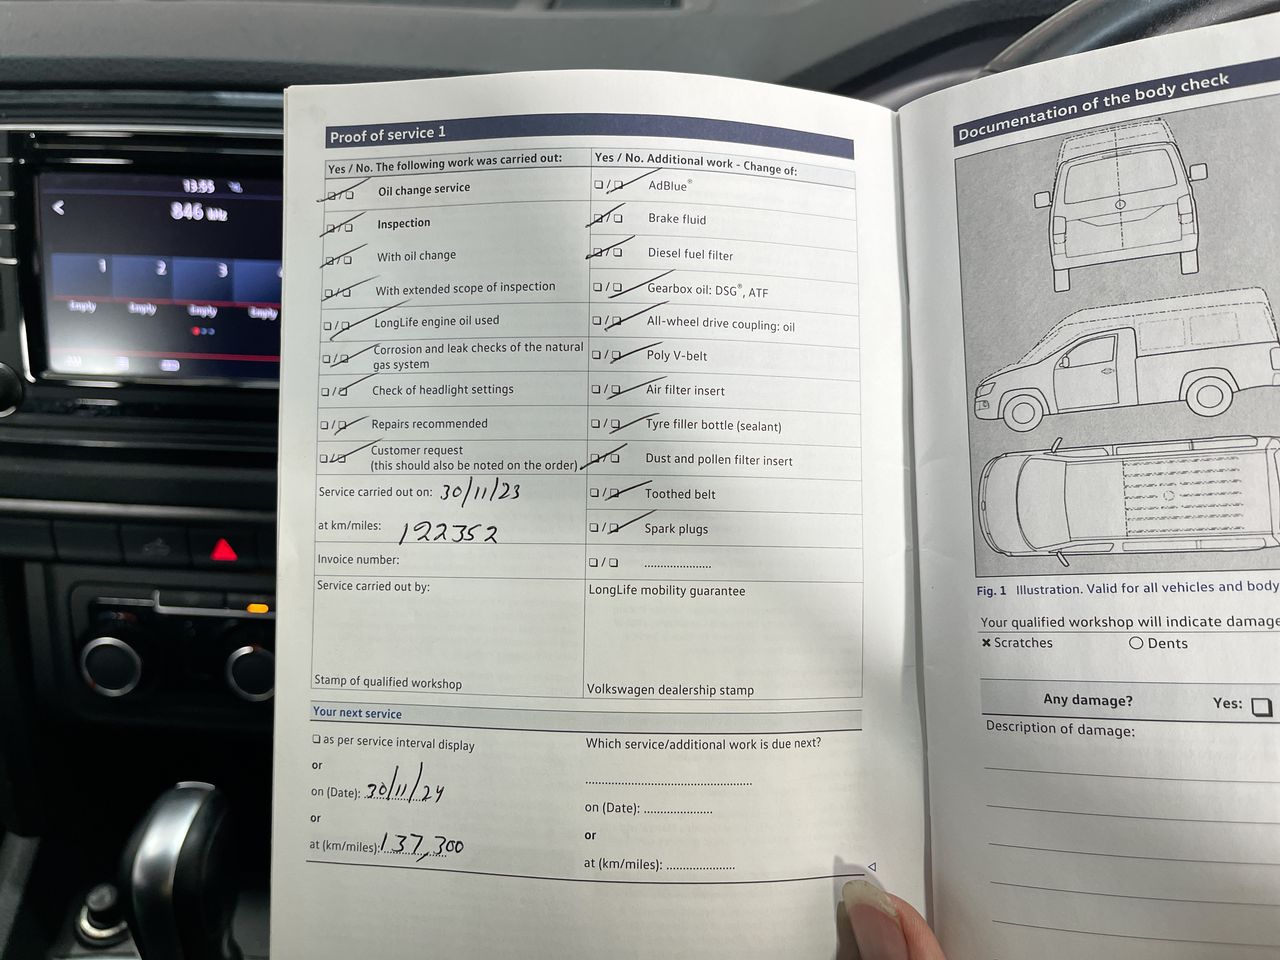 13:55
846 kHz
1 2 3 4
Empty Empty Empty Empty
Proof of service 1
Yes / No. The following work was carried out:
❑/❑ Oil change service
❑/❑ Inspection
❑/❑ With oil change
❑/❑ With extended scope of inspection
❑/❑ LongLife engine oil used
❑/❑ Corrosion and leak checks of the natural
gas system
❑/❑ Check of headlight settings
❑/❑ Repairs recommended
❑/❑ Customer request
(this should also be noted on the order)
Service carried out on: 30/11/23
at km/miles: 122352
Invoice number:
Service carried out by:
Stamp of qualified workshop
Yes / No. Additional work - Change of:
❑/❑ AdBlue®
❑/❑ Brake fluid
❑/❑ Diesel fuel filter
❑/❑ Gearbox oil: DSG®, ATF
❑/❑ All-wheel drive coupling: oil
❑/❑ Poly V-belt
❑/❑ Air filter insert
❑/❑ Tyre filler bottle (sealant)
❑/❑ Dust and pollen filter insert
❑/❑ Toothed belt
❑/❑ Spark plugs
❑/❑ ......................
LongLife mobility guarantee
Volkswagen dealership stamp
Your next service
❑ as per service interval display
or
on (Date): 30/11/24
or
at (km/miles): 137,300
Which service/additional work is due next?
......................................................
on (Date): ......................
or
at (km/miles): ......................
Documentation of the body check
Fig. 1 Illustration. Valid for all vehicles and body
Your qualified workshop will indicate damage
✖ Scratches ○ Dents
Any damage? Yes: ❑
Description of damage: